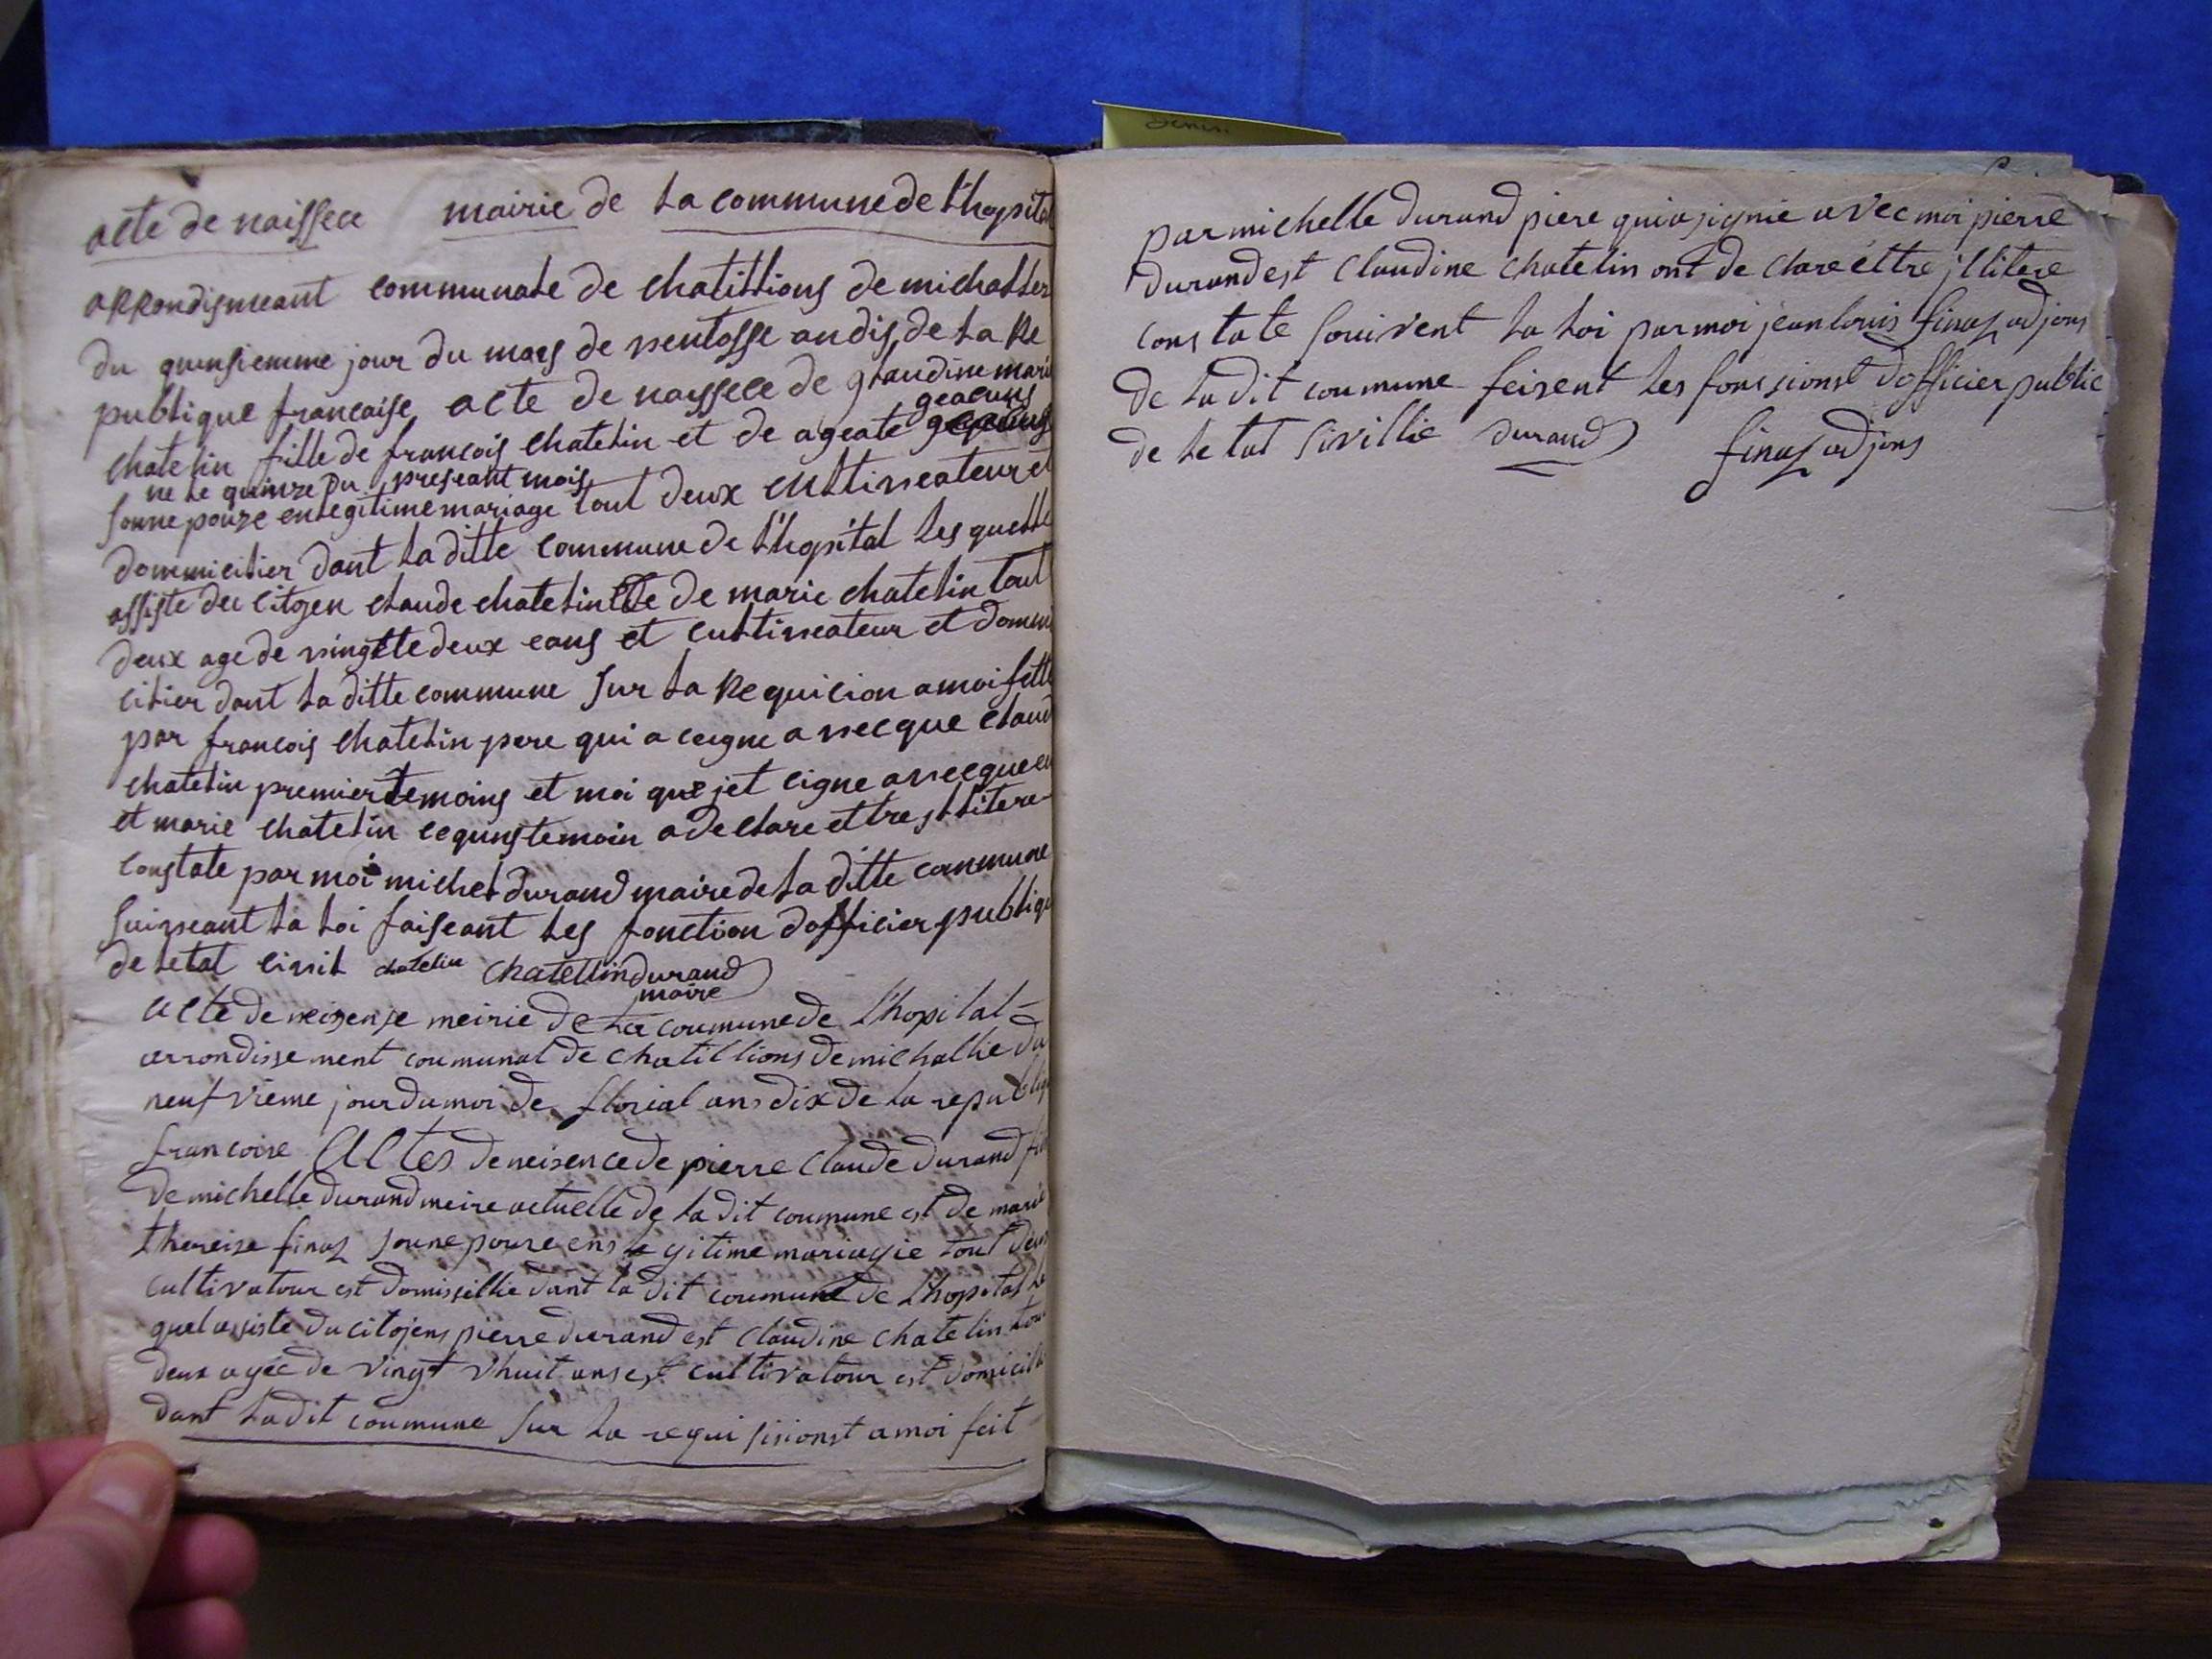 acte de naissee mairie de la commune de l'hopital
arrondisment communale de chatillions de michaller
du quensiemme jour du mois de ventosse an dis de la Re
publique francaise acte de naissece de glaudine marie
geacuns
chatelin fille de francois chatelin et de ageate
ne le quinze du preseant mois
sonne pouze en legitime mariage tout deux cultiveateur et
dommicilier dant la ditte commune de l'hopital les quelle
assiste deu citoyen claude chatelin et de marie chatelin tout
deux age de vingtte deux eans et cultiveateur et dommi
cilier dant la ditte commune sur la Requicion a moi fette
par francois chatelin pere qui a ceigne avecque claud
chatelin premier temoins et moi que jet cigne avecque eu
et marie chatelin cegunstemoin a declare ettre illitere
constate par moi michel durand maire de la ditte commune
suiveant la loi faiseant les fonction dofficier publique
de letat civil chatelin chatellin durand
maire
acte de neisense meirie de la coumune de l'hopital
arrondissement coumunal de chatillions de michallie du
neufvieme jour du moi de florial ans dix de la republiq
francoise Actes de neisence de pierre claude durand fils
de michelle durand meire actuelle de la dit coumune est de marie
thereise finaz soune pouse ens legitime mariagie tout deux
cultivatour est domissillie dant la dit coumune de l'hopital le
quel assiste du citojens pierre durand est claudine chatelin tout
deux agée de vingt vhuit ans est cultivatour est domicilie
dant ladit coumune sur la requisisionst a moi feit
par michelle durand piere qui a signie avec moi pierre
durand est claudine chatelin ont de clare ettre jllitere
constate souivent la loi par moi jean louis finaz adjons
de ladit coumune feisent les fonssionst dofficier public
de letat sivillie durand finaz adjons